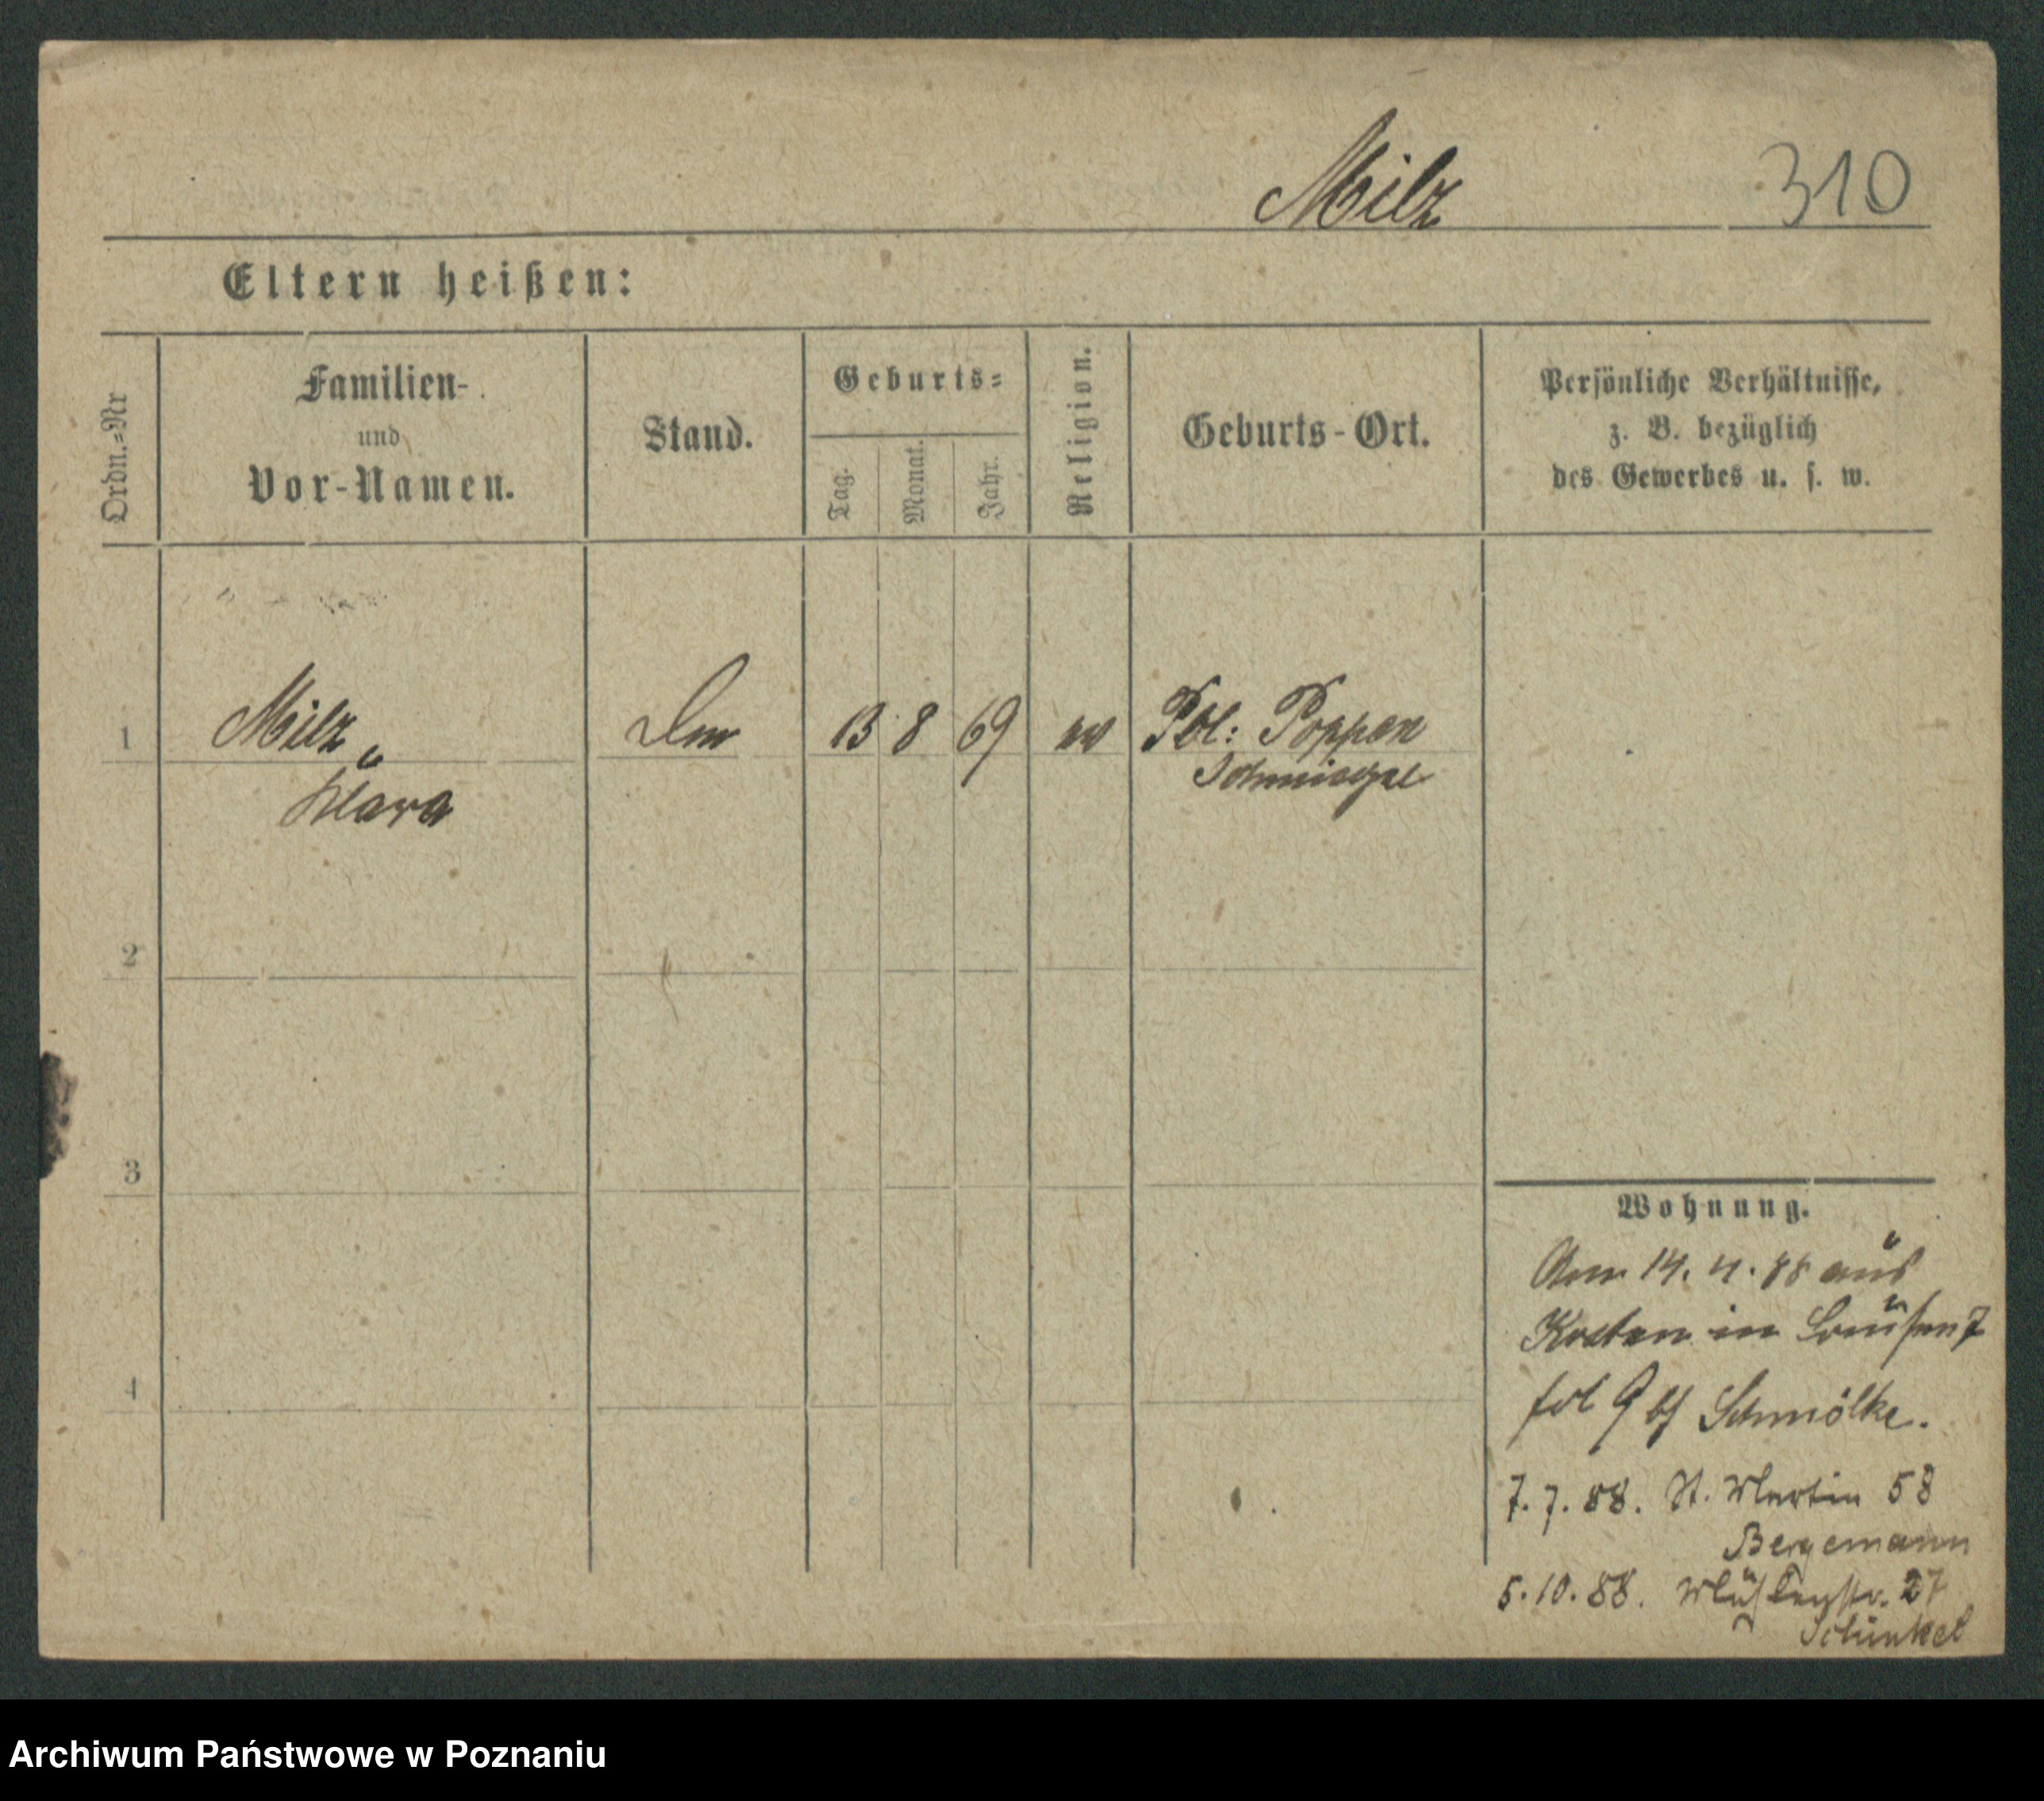 Milz 310
Eltern heißen:
Ordn.=Nr
Familien-
und
Vor-Namen.
Stand.
Geburts=
Tag.
Monat.
Jahr.
Religion.
Geburts-Ort.
Persönliche Verhältnisse,
z. B. bezüglich
des Gewerbes u. s. w.
1 Milz 13 8 69 ev Pol: Poppen
Schmiegel
Klara
2
3
4
Wohnung.
14. 4. 88 aus
Kosten in
fol 9 bei Schmölke.
7. 7. 88. St. Martin 58
Bergemann
5. 10. 88. Mühlenstr. 27
Schinkel
Archiwum Państwowe w Poznaniu